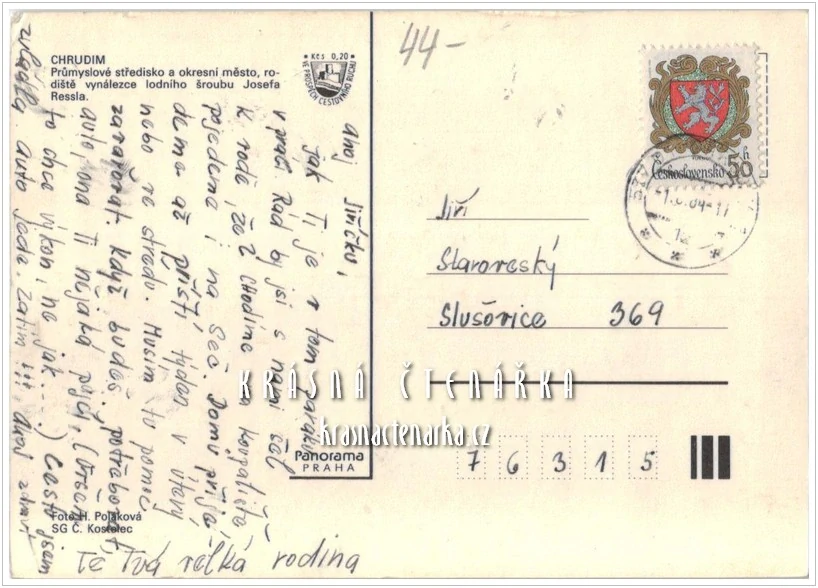 44-
CHRUDIM
Průmyslové středisko a okresní město, ro-
diště vynálezce lodního šroubu Josefa
Ressla.
Kčs 0,20
VE PROSPĚCH CESTOVNÍHO RUCHU
Československo 50 h
Ahoj Jiříčku,
jak Ti je v tom parném
v práci. Rád by jsi s námi šel
k vodě, že? Chodíme na koupaliště,
pojedeme i na Seč. Domů přije-
deme až příští týden v úterý
nebo ve středu. Musím tu pomoc
zavařovat. Když budeš potřebovat
auto, ona Ti nějaká půjčí,
to chce výkon, ne jak...) Cestu jsem
zvládla. Auto jede. Zatím !!! Ahoj zdraví
Tě Tvá velká rodina
Jiří
Staroveský
Slušovice 369
KRÁSNÁ ČTENÁŘKA
krasnactenarka.cz
Panorama
PRAHA
7 6 3 1 5
Foto H. Poláková
SG Č. Kostelec